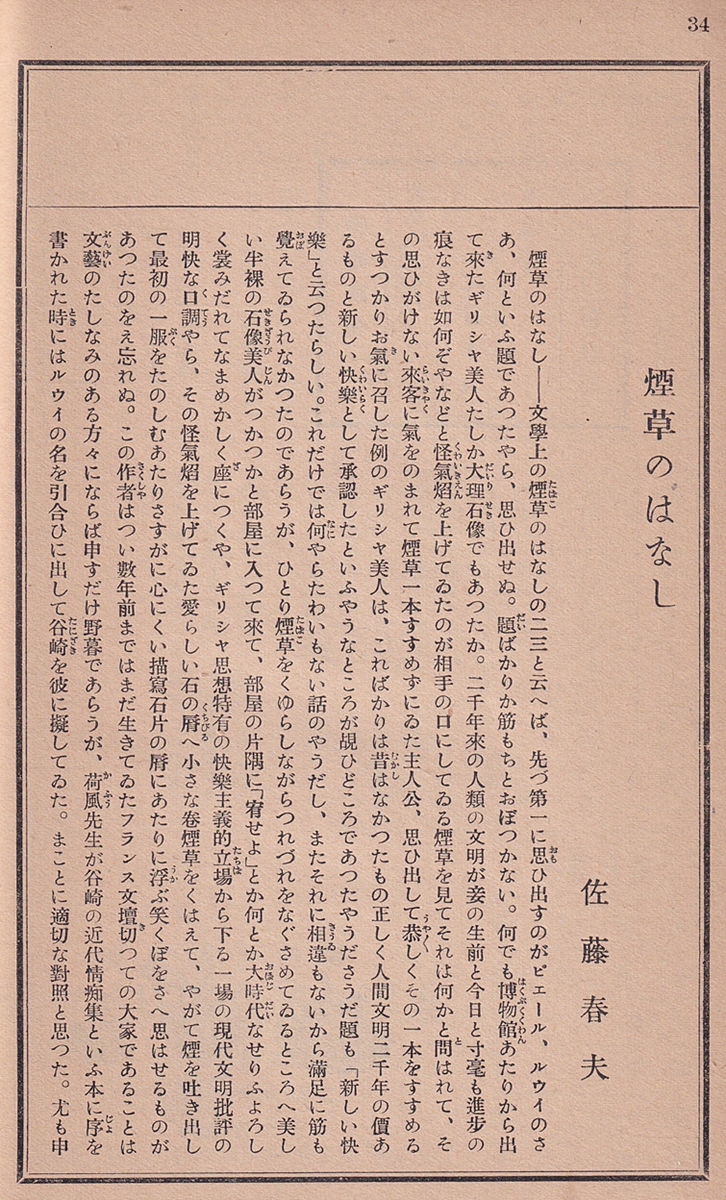 34
煙草のはなし
佐藤春夫
煙草のはなし——文學上の煙草のはなしの二三と云へば、先づ第一に思ひ出すのがピエール、ルウイのさ
あ、何といふ題であつたやら、思ひ出せぬ。題ばかりか筋もちとおぼつかない。何でも博物館あたりから出
て來たギリシャ美人たしか大理石像でもあつたか。二千年來の人類の文明が妾の生前と今日と寸毫も進步の
痕なきは如何ぞやなどと怪氣焰を上げてゐたのが相手の口にしてゐる煙草を見てそれは何かと問はれて、そ
の思ひがけない來客に氣をのまれて煙草一本すすめずにゐた主人公、思ひ出して恭しくその一本をすすめる
とすつかりお氣に召した例のギリシャ美人は、こればかりは昔はなかつたもの正しく人間文明二千年の價あ
るものと新しい快樂として承認したといふやうなところが覘ひどころであつたやうださうだ題も「新しい快
樂」と云つたらしい。これだけでは何やらたわいもない話のやうだし、またそれに相違もないから滿足に筋も
覺えてゐられなかつたのであらうが、ひとり煙草をくゆらしながらつれづれをなぐさめてゐるところへ美し
い半裸の石像美人がつかつかと部屋に入つて來て、部屋の片隅に「宥せよ」とか何とか大時代なせりふよろし
く裳みだれてなまめかしく座につくや、ギリシャ思想特有の快樂主義的立場から下る一場の現代文明批評の
明快な口調やら、その怪氣焰を上げてゐた愛らしい石の脣へ小さな卷煙草をくはえて、やがて煙を吐き出し
て最初の一服をたのしむあたりさすがに心にくい描寫石片の脣にあたりに浮ぶ笑くぼをさへ思はせるものが
あつたのをえ忘れぬ。この作者はつい數年前まではまだ生きてゐたフランス文壇切つての大家であることは
文藝のたしなみのある方々にならば申すだけ野暮であらうが、荷風先生が谷崎の近代情痴集といふ本に序を
書かれた時にはルウイの名を引合ひに出して谷崎を彼に擬してゐた。まことに適切な對照と思つた。尤も申